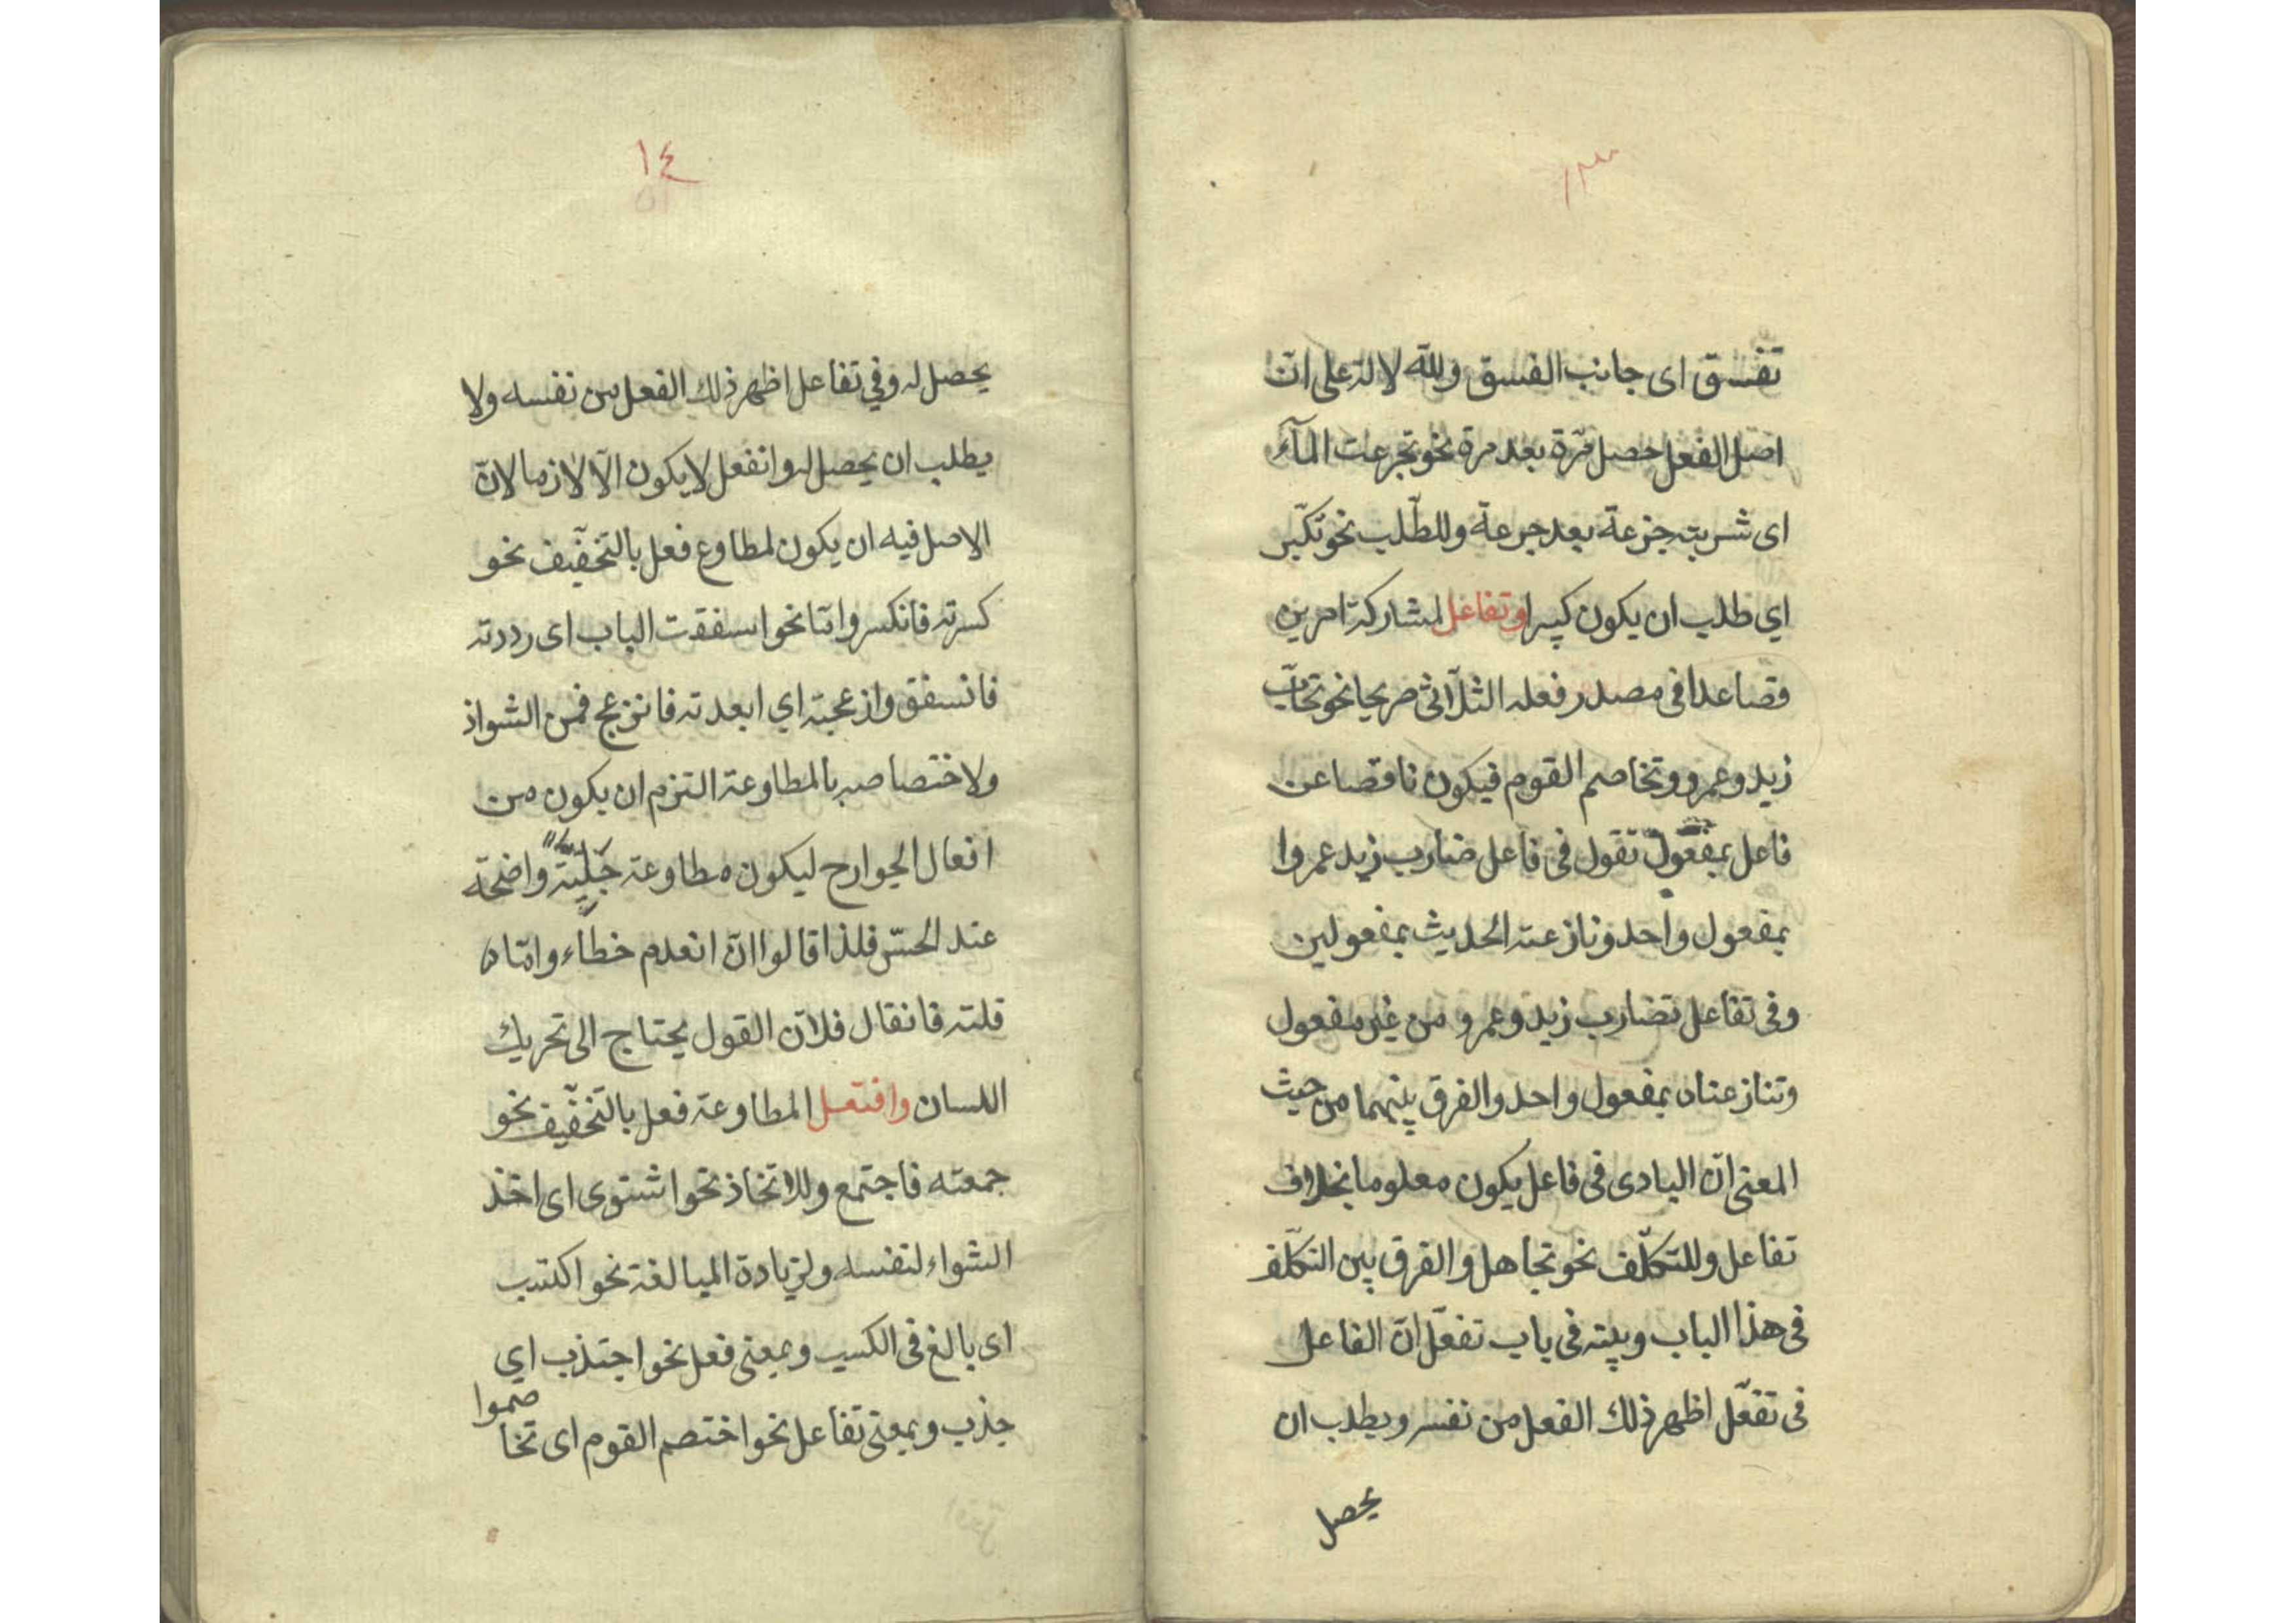 ١٣
تفسق اى جانب الفسق وللّه لالة على انّ
اصل الفعل حصل مرّة بعد مرة نحو تجرعت المآء
اى شربته جزعة بعد جرعة وللطّلب نحو تكبّر
اي طلب ان يكون كبيرا وتفاعل لمشاركة امرين
فصاعدا فى مصدر فعله الثلّاثى صريحا نحو تحابّ
زيد وعمرو وتخاصم القوم فيكون ناقصا عن
فاعل بمفعول تقول فى فاعل ضارب زيد عمروا
بمفعول واحد ونازعته الحديث بمفعولين
وفى تفاعل تضارب زيد وعمرو من غير مفعول
وتنازعناه بمفعول واحد والفرق بينهما من حيث
المعنى انّ البادى فى فاعل يكون معلوما بخلاف
تفاعل وللتكلّف نحو تجاهل والفرق بين التكلّف
فى هذا الباب وبينه فى باب تفعّل انّ الفاعل
فى تفعّل اظهر ذلك الفعل من نفسه ويطلب ان
يحصل
١٤
يحصل له وفي تفاعل اظهر ذلك الفعل من نفسه ولا
يطلب ان يحصل له وانفعل لا يكون الّا لازما لانّ
الاصل فيه ان يكون لمطاوع فعل بالتخفيف نحو
كسرته فانكسر وامّا نحو اسفقت الباب اى رددته
فانسفق وازعجته اي ابعدته فانزعج فمن الشواذ
ولاختصاصه بالمطاوعة التزم ان يكون من
افعال الجوارح ليكون مطاوعة جَليّة واضحة
عند الحسّ فلذا قالوا انّ انعدم خطاء وامّا
قلته فانقال فلانّ القول يحتاج الى تحريك
اللسان وافتعل المطاوعة فعل بالتخفيف نحو
جمعته فاجتمع وللاتخاذ نحو اشتوى اى اخذ
الشواء لنفسه ولزيادة المبالغة نحو اكتسب
اى بالغ فى الكسب وبمعنى فعل نحو اجتذب اي
جذب وبمعنى تفاعل نحو اختصم القوم اى تخا
صموا